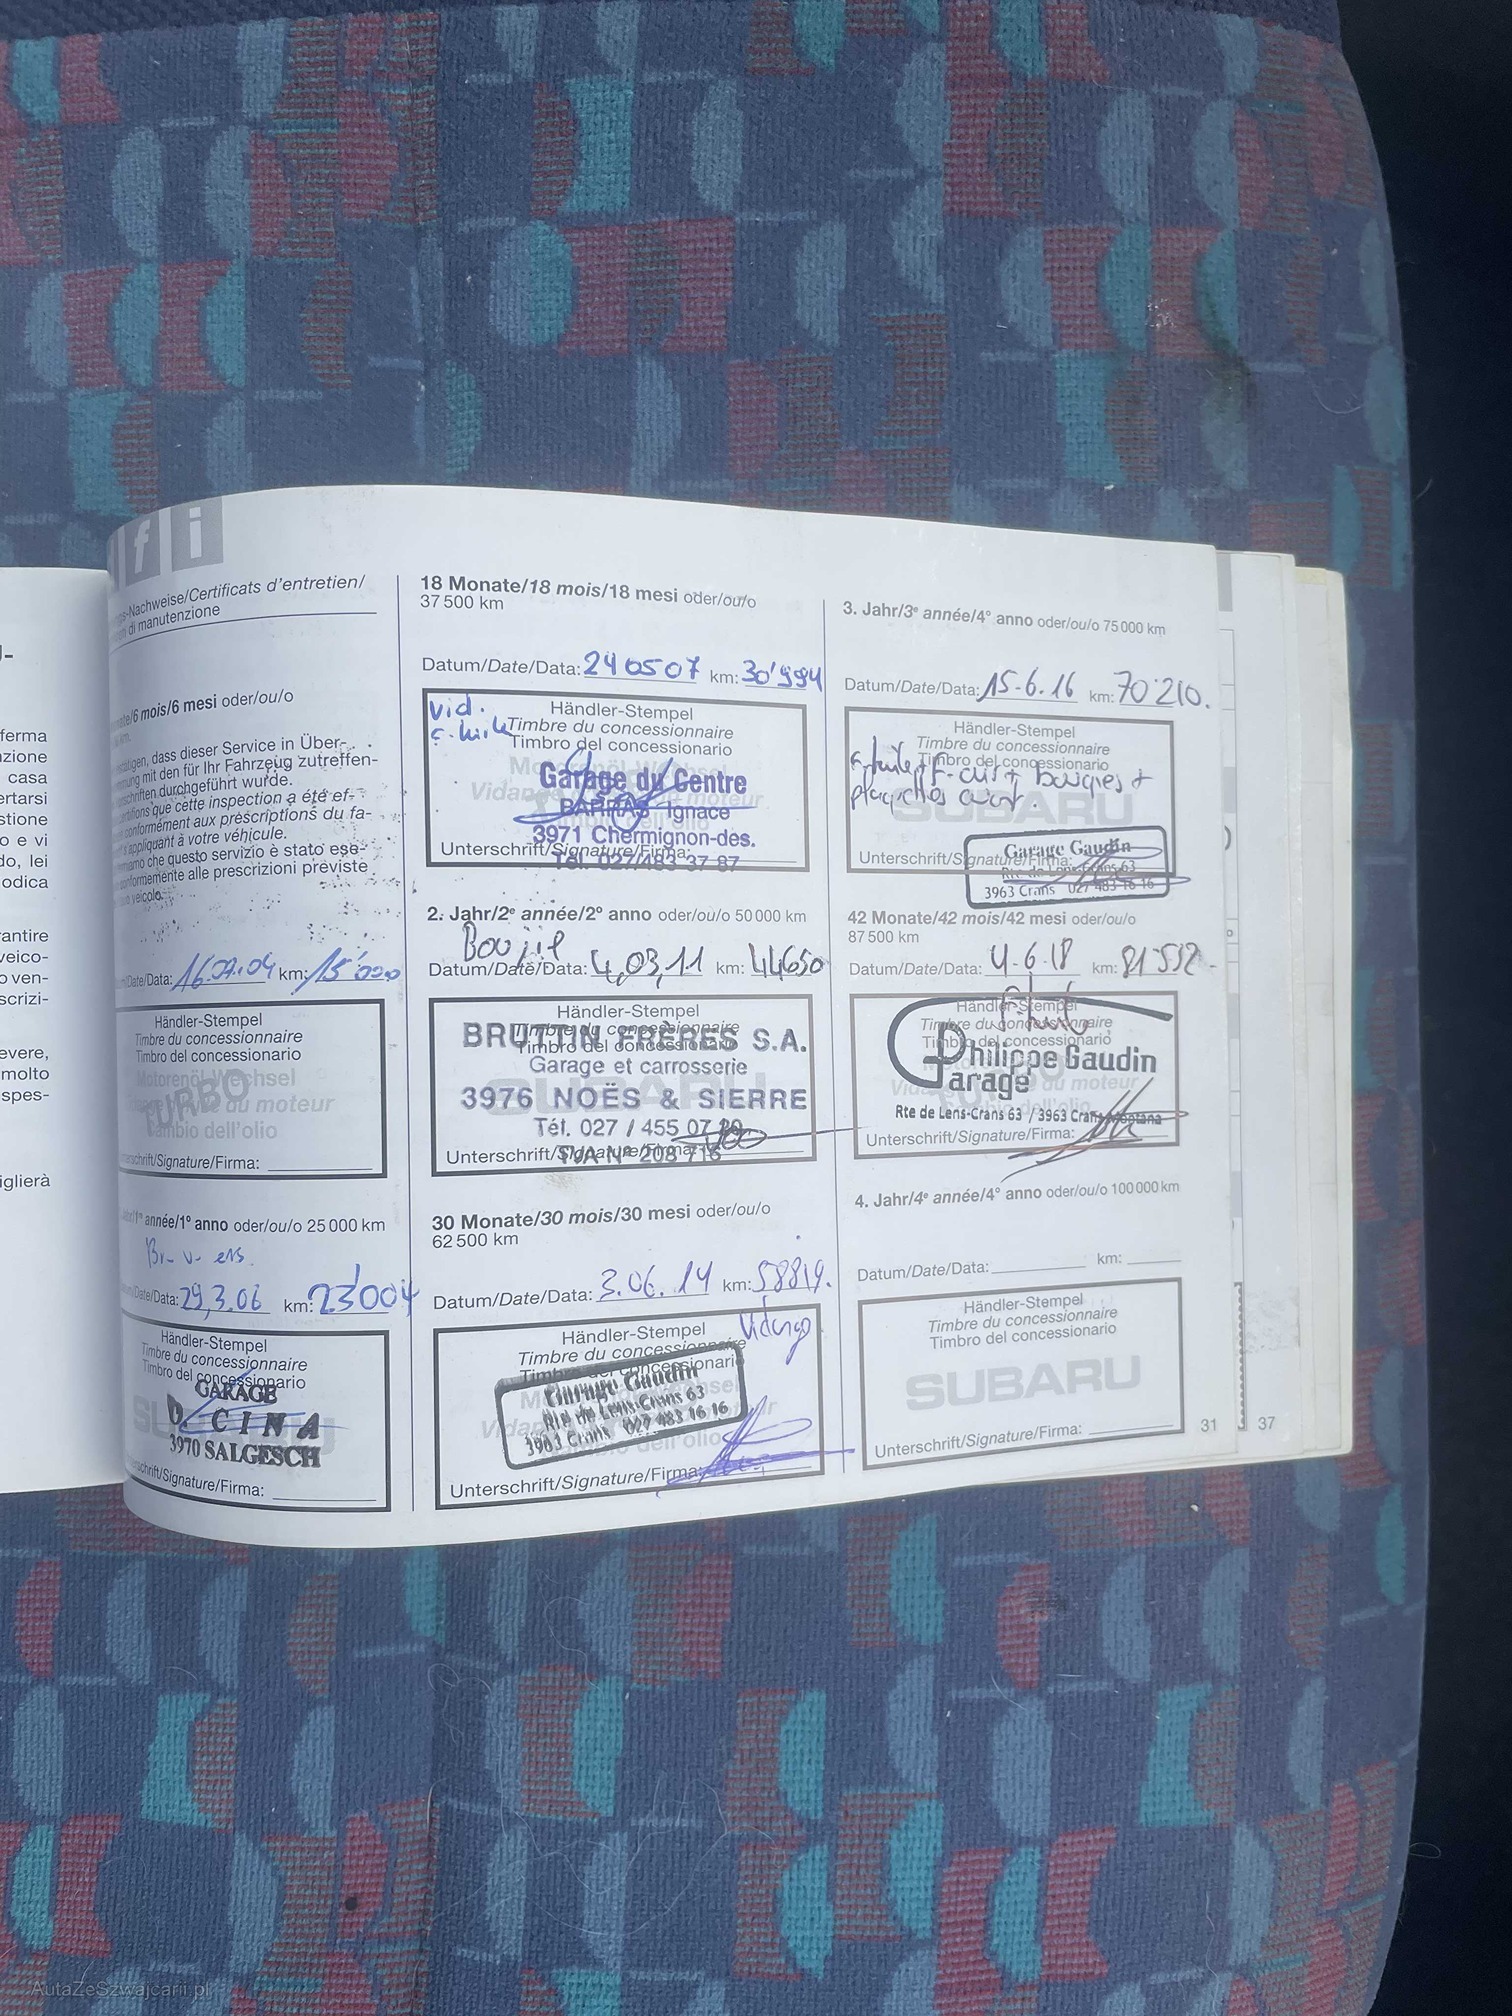 f i
-Nachweise/Certificats d'entretien/
di manutenzione
/6 mois/6 mesi oder/ou/o
dass dieser Service in Über-
mit den für Ihr Fahrzeug zutreffen-
durchgeführt wurde.
que cette inspection a été ef-
conformément aux prescriptions du fa-
s'appliquant à votre véhicule.
che questo servizio è stato ese-
conformemente alle prescrizioni previste
veicolo.
Date/Data: km: 15'000
Händler-Stempel
Timbre du concessionnaire
Timbro del concessionario
Motorenöl-Wechsel
TURBO du moteur
Cambio dell'olio
Unterschrift/Signature/Firma:
année/1° anno oder/ou/o 25 000 km
Date/Data: 29,3.06 km: 23'004
Händler-Stempel
Timbre du concessionnaire
Timbro del concessionario
GARAGE
D. CINA
3970 SALGESCH
Unterschrift/Signature/Firma:
18 Monate/18 mois/18 mesi oder/ou/o
37 500 km
Datum/Date/Data: 240507 km: 30'994
vid.
Händler-Stempel
Timbre du concessionnaire
Timbro del concessionario
Garage du Centre
BARRAS Ignace
3971 Chermignon-des.
Unterschrift/Signature/Firma:
Tél. 027/483 37 87
2. Jahr/2e année/2° anno oder/ou/o 50 000 km
Datum/Date/Data: 4,03,11 km: 44650
Händler-Stempel
Timbre du concessionnaire
Timbro del concessionario
BRUTTIN FRÈRES S.A.
Garage et carrosserie
SUBARU
3976 NOËS & SIERRE
Tél. 027 / 455 07
Unterschrift/Signature/Firma:
TVA N° 208 716
30 Monate/30 mois/30 mesi oder/ou/o
62 500 km
Datum/Date/Data: 3.06.14 km: 58819.
Vidange
Händler-Stempel
Timbre du concessionnaire
Timbro del concessionario
Garage Gaudin
Rte de Lens-Crans 63
3963 Crans 027 483 16 16
Unterschrift/Signature/Firma:
3. Jahr/3e année/4° anno oder/ou/o 75 000 km
Datum/Date/Data: 15-6.16 km: 70'210.
Händler-Stempel
Timbre du concessionnaire
Timbro del concessionario
bougies +
SUBARU
Garage Gaudin
Unterschrift/Signature/Firma:
Rte de Lens-Crans 63
3963 Crans 027 483 16 16
42 Monate/42 mois/42 mesi oder/ou/o
87 500 km
Datum/Date/Data: 4-6.18 km: 81'552
Händler-Stempel
Timbre du concessionnaire
Timbro del concessionario
Philippe Gaudin
Garage
Rte de Lens-Crans 63 / 3963 Crans-Montana
Unterschrift/Signature/Firma:
4. Jahr/4e année/4° anno oder/ou/o 100 000 km
Datum/Date/Data: km:
Händler-Stempel
Timbre du concessionnaire
Timbro del concessionario
SUBARU
Unterschrift/Signature/Firma:
31
37
AutaZeSzwajcarii.pl